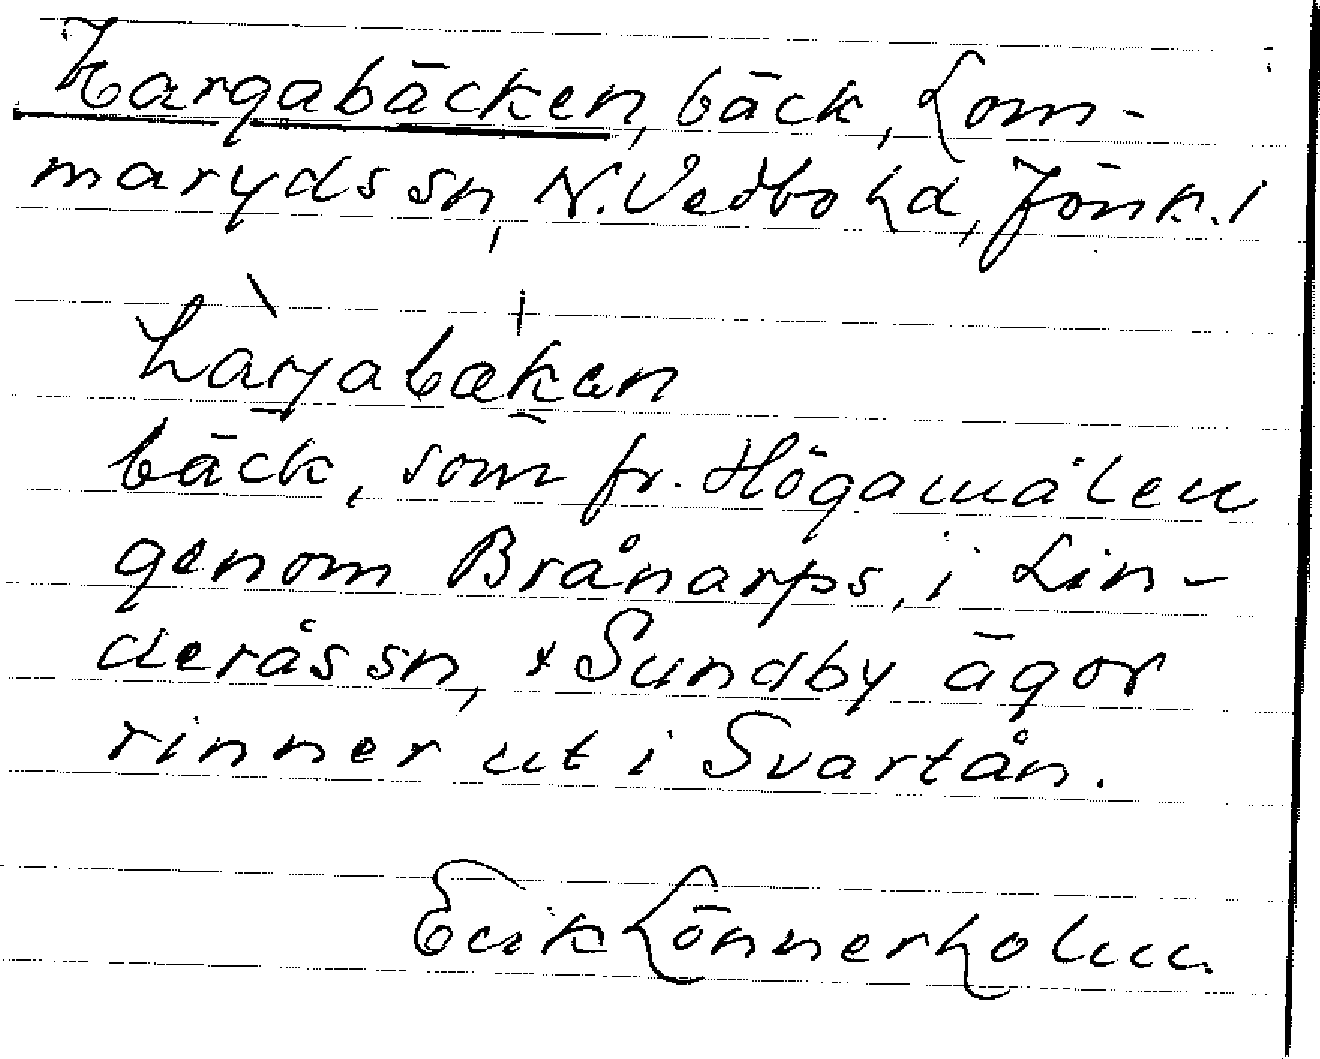 Hargabäcken, bäck, Lom-
maryds sn, N. Vedbo hd, Jönk. l
hàrjabækən
bäck, som fr. Högamålen
genom Brånarps, i Lin-
derås sn, + Sundby ägor
rinner ut i Svartån.
Erik Lönnerholm.